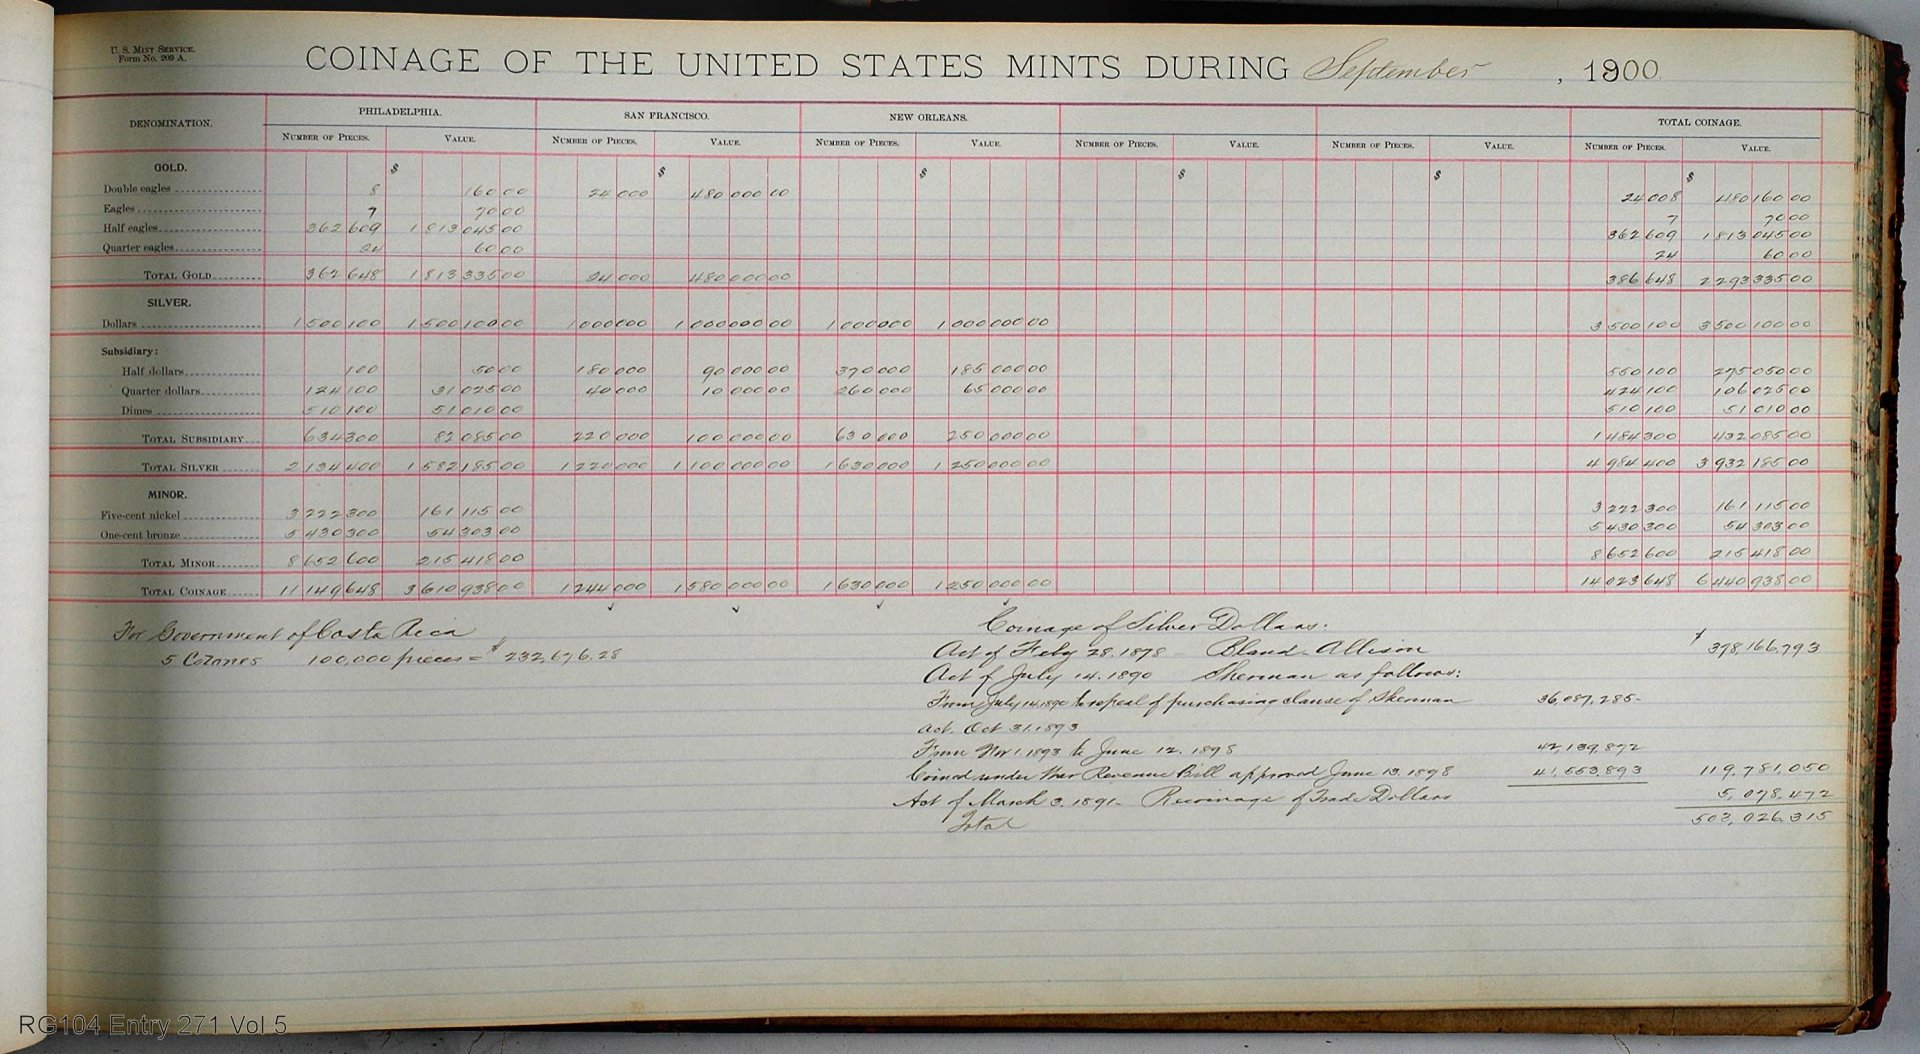 U. S. Mint Service.
Form No. 209 A.
COINAGE OF THE UNITED STATES MINTS DURING September, 1900.
DENOMINATION. PHILADELPHIA. SAN FRANCISCO. NEW ORLEANS. TOTAL COINAGE.
Number of Pieces. Value. Number of Pieces. Value. Number of Pieces. Value. Number of Pieces. Value. Number of Pieces. Value. Number of Pieces. Value.
GOLD. $ $ $ $ $ $
Double eagles 8 160 00 24 000 480 000 00 24 008 480 160 00
Eagles 7 70 00 7 70 00
Half eagles 362 609 1 813 045 00 362 609 1 813 045 00
Quarter eagles 24 60 00 24 60 00
Total Gold 362 648 1 813 335 00 24 000 480 000 00 386 648 2 293 335 00
SILVER.
Dollars 1 500 100 1 500 100 00 1 000 000 1 000 000 00 1 000 000 1 000 000 00 3 500 100 3 500 100 00
Subsidiary:
Half dollars 100 50 00 180 000 90 000 00 370 000 185 000 00 550 100 275 050 00
Quarter dollars 124 100 31 025 00 40 000 10 000 00 260 000 65 000 00 424 100 106 025 00
Dimes 510 100 51 010 00 510 100 51 010 00
Total Subsidiary 634 300 82 085 00 220 000 100 000 00 630 000 250 000 00 1 484 300 432 085 00
Total Silver 2 134 400 1 582 185 00 1 220 000 1 100 000 00 1 630 000 1 250 000 00 4 984 400 3 932 185 00
MINOR.
Five-cent nickel 3 222 300 161 115 00 3 222 300 161 115 00
One-cent bronze 5 430 300 54 303 00 5 430 300 54 303 00
Total Minor 8 652 600 215 418 00 8 652 600 215 418 00
Total Coinage 11 149 648 3 610 938 00 1 244 000 1 580 000 00 1 630 000 1 250 000 00 14 023 648 6 440 938 00
For Government of Costa Rica
5 Colones 100,000 pieces = $ 232,676.28
Coinage of Silver Dollars:
Act of Feby 28. 1878 - Bland-Allison $ 378,166,793
Act of July 14. 1890 Sherman as follows:
From July 14. 1890 to repeal of purchasing clause of Sherman 36,087,285-
act. Oct 31. 1893
From Nov 1. 1893 to June 12. 1898 42,139,872
Coined under War Revenue Bill approved June 13. 1898 41,553,893 119,781,050
Act of March 3. 1891 - Recoinage of Trade Dollars 5,078,472
Total 503,026,315
RG104 Entry 271 Vol 5